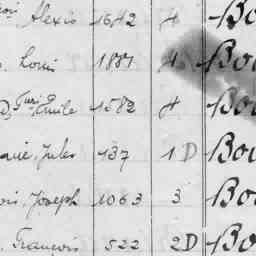 Alexis 1642 4 Bo
Louis 1851 4 Bou
Emile 1582 4 Bo
Jules 137 1 D Bou
Joseph 1063 3 Bo
François 522 2 D Bo